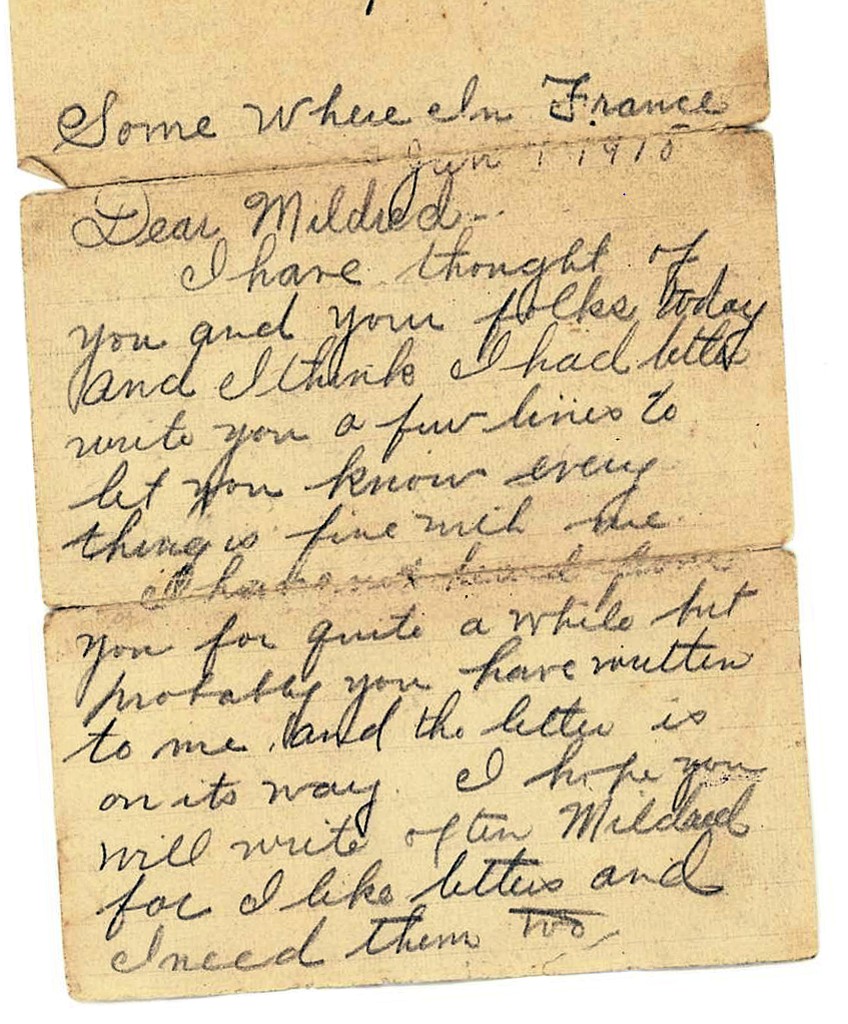 Some Where In France
Jun 1 191
Dear Mildred-
I have thought of
you and your folks today
and I think I had better
write you a few lines to
let you know every
thing is fine with me
I have not heard from
you for quite a while but
probably you have written
to me, and the letter is
on its way. I hope you
will write often Mildred
for I like letters and
I need them too